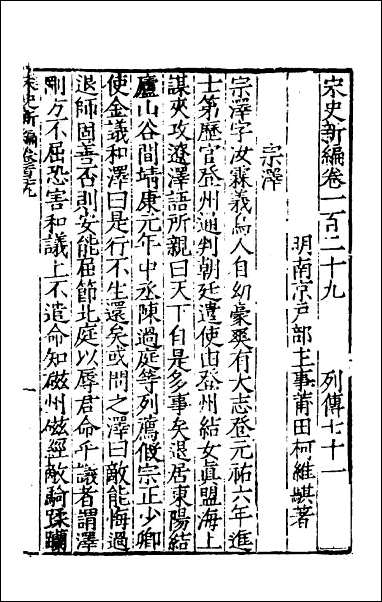 宋史新編卷一百二十九 列傳七十一
明南京戸部主事莆田柯維騏著
宗澤
宗澤字汝霖義烏人自幼豪爽有大志登元祐六年進
士第歷官登州通判朝廷遣使由登州結女真盟海上
謀夾攻遼澤語所親曰天下自是多事矣退居東陽結
廬山谷間靖康元年中丞陳過庭等列薦假宗正少卿
使金議和澤曰是行不生還矣或問之澤曰敵能悔過
退師固善否則安能屈節北庭以辱君命乎議者謂澤
剛方不屈恐害和議上不遣命知磁州磁經敵騎蹂躪
宋史新編卷百二十九
一